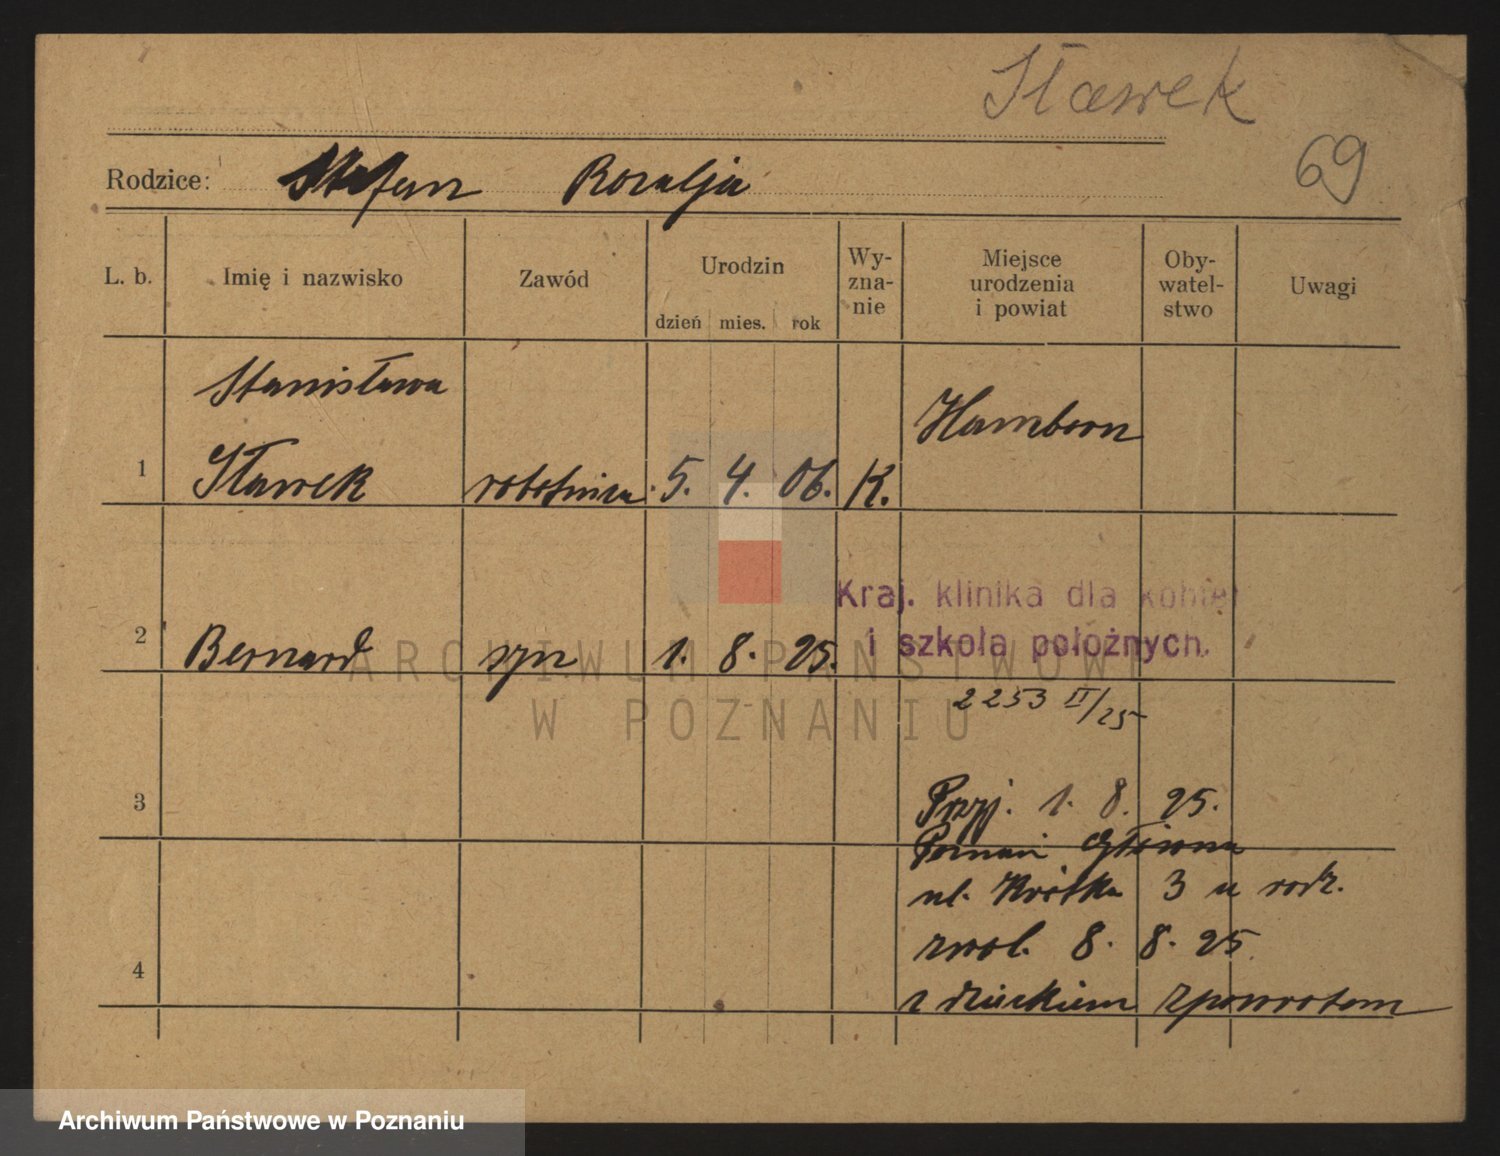 Sławek
69
Rodzice: Stefan Rozalja
L. b. Imię i nazwisko Zawód Urodzin dzień mies. rok Wy- zna- nie Miejsce urodzenia i powiat Oby- watel- stwo Uwagi
Stanisława
Hamborn
1 Sławek robotnica 5. 4. 06. K.
Kraj. klinika dla kobiet
i szkoła położnych.
2 Bernard syn 1. 8. 25.
ARCHIWUM PAŃSTWOWE
W POZNANIU
2253 II/25
3 Przyj. 1. 8. 25.
Poznań Główna
ul. Krótka 3 u rodz.
zwol. 8. 8. 25.
4
z dzieckiem zpowrotem
Archiwum Państwowe w Poznaniu